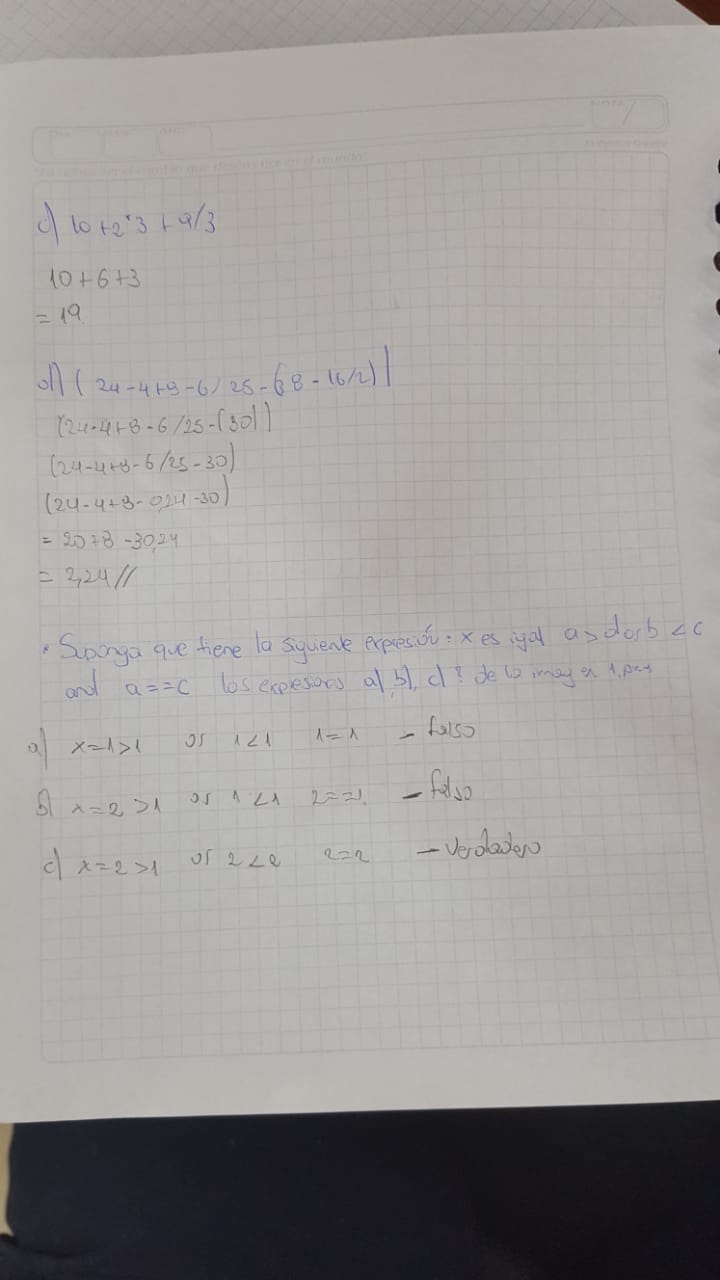 c) 10+2*3+9/3
10+6+3
=19
d) (24-4+8-6/25-(38-16/2))
(24-4+8-6/25-(30))
(24-4+8-6/25-30)
(24-4+8-0,24-30)
= 20+8-30,24
= 2,24//
* Suponga que tiene la siguiente expresión: x es igal a > d or b < c
and a==c los expresions a), b), c)? de lo
a) x=1>1 or 1<1 1=1 - falso
b) x=2>1 or 1<1 2==1. - falso
c) x=2>1 or 2<2 2=2 - Verdadero